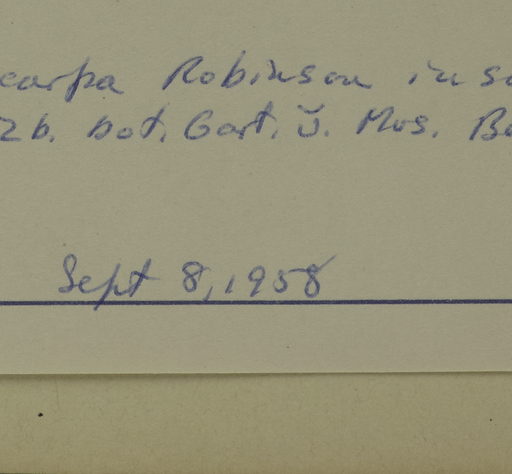 carpa Robinson in s
zb. bot. Gart. ŭ. Mus. B
Sept 8, 1958